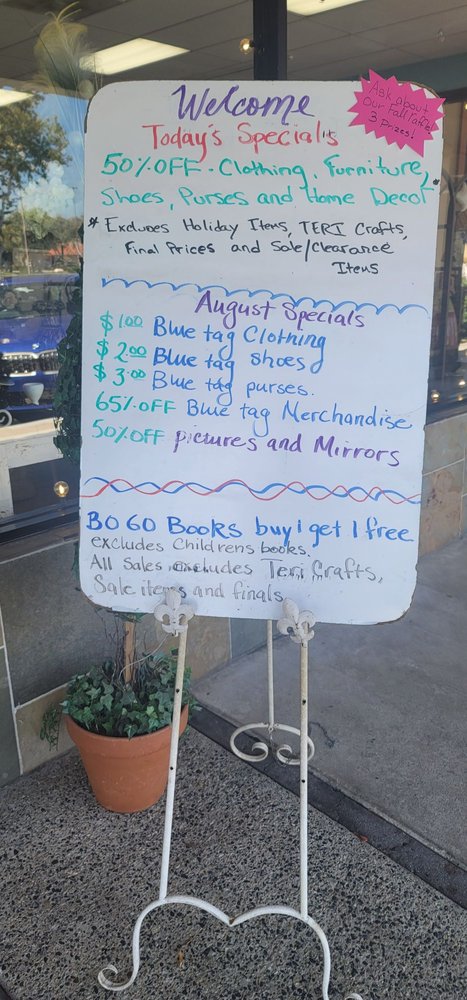 Welcome
Ask about
Our Fall raffle
3 Prizes!
Today's Specials
50% OFF - Clothing, Furniture,
Shoes, Purses and Home Decor
* Excludes Holiday Items, TERI Crafts,
Final Prices and Sale/Clearance
Items
August Specials
$1.00 Blue tag Clothing
$2.00 Blue tag Shoes
$3.00 Blue tag purses.
65% OFF Blue tag Merchandise
50% OFF pictures and Mirrors
BOGO Books buy 1 get 1 free
excludes Childrens books.
All Sales excludes Teri Crafts,
Sale items and finals